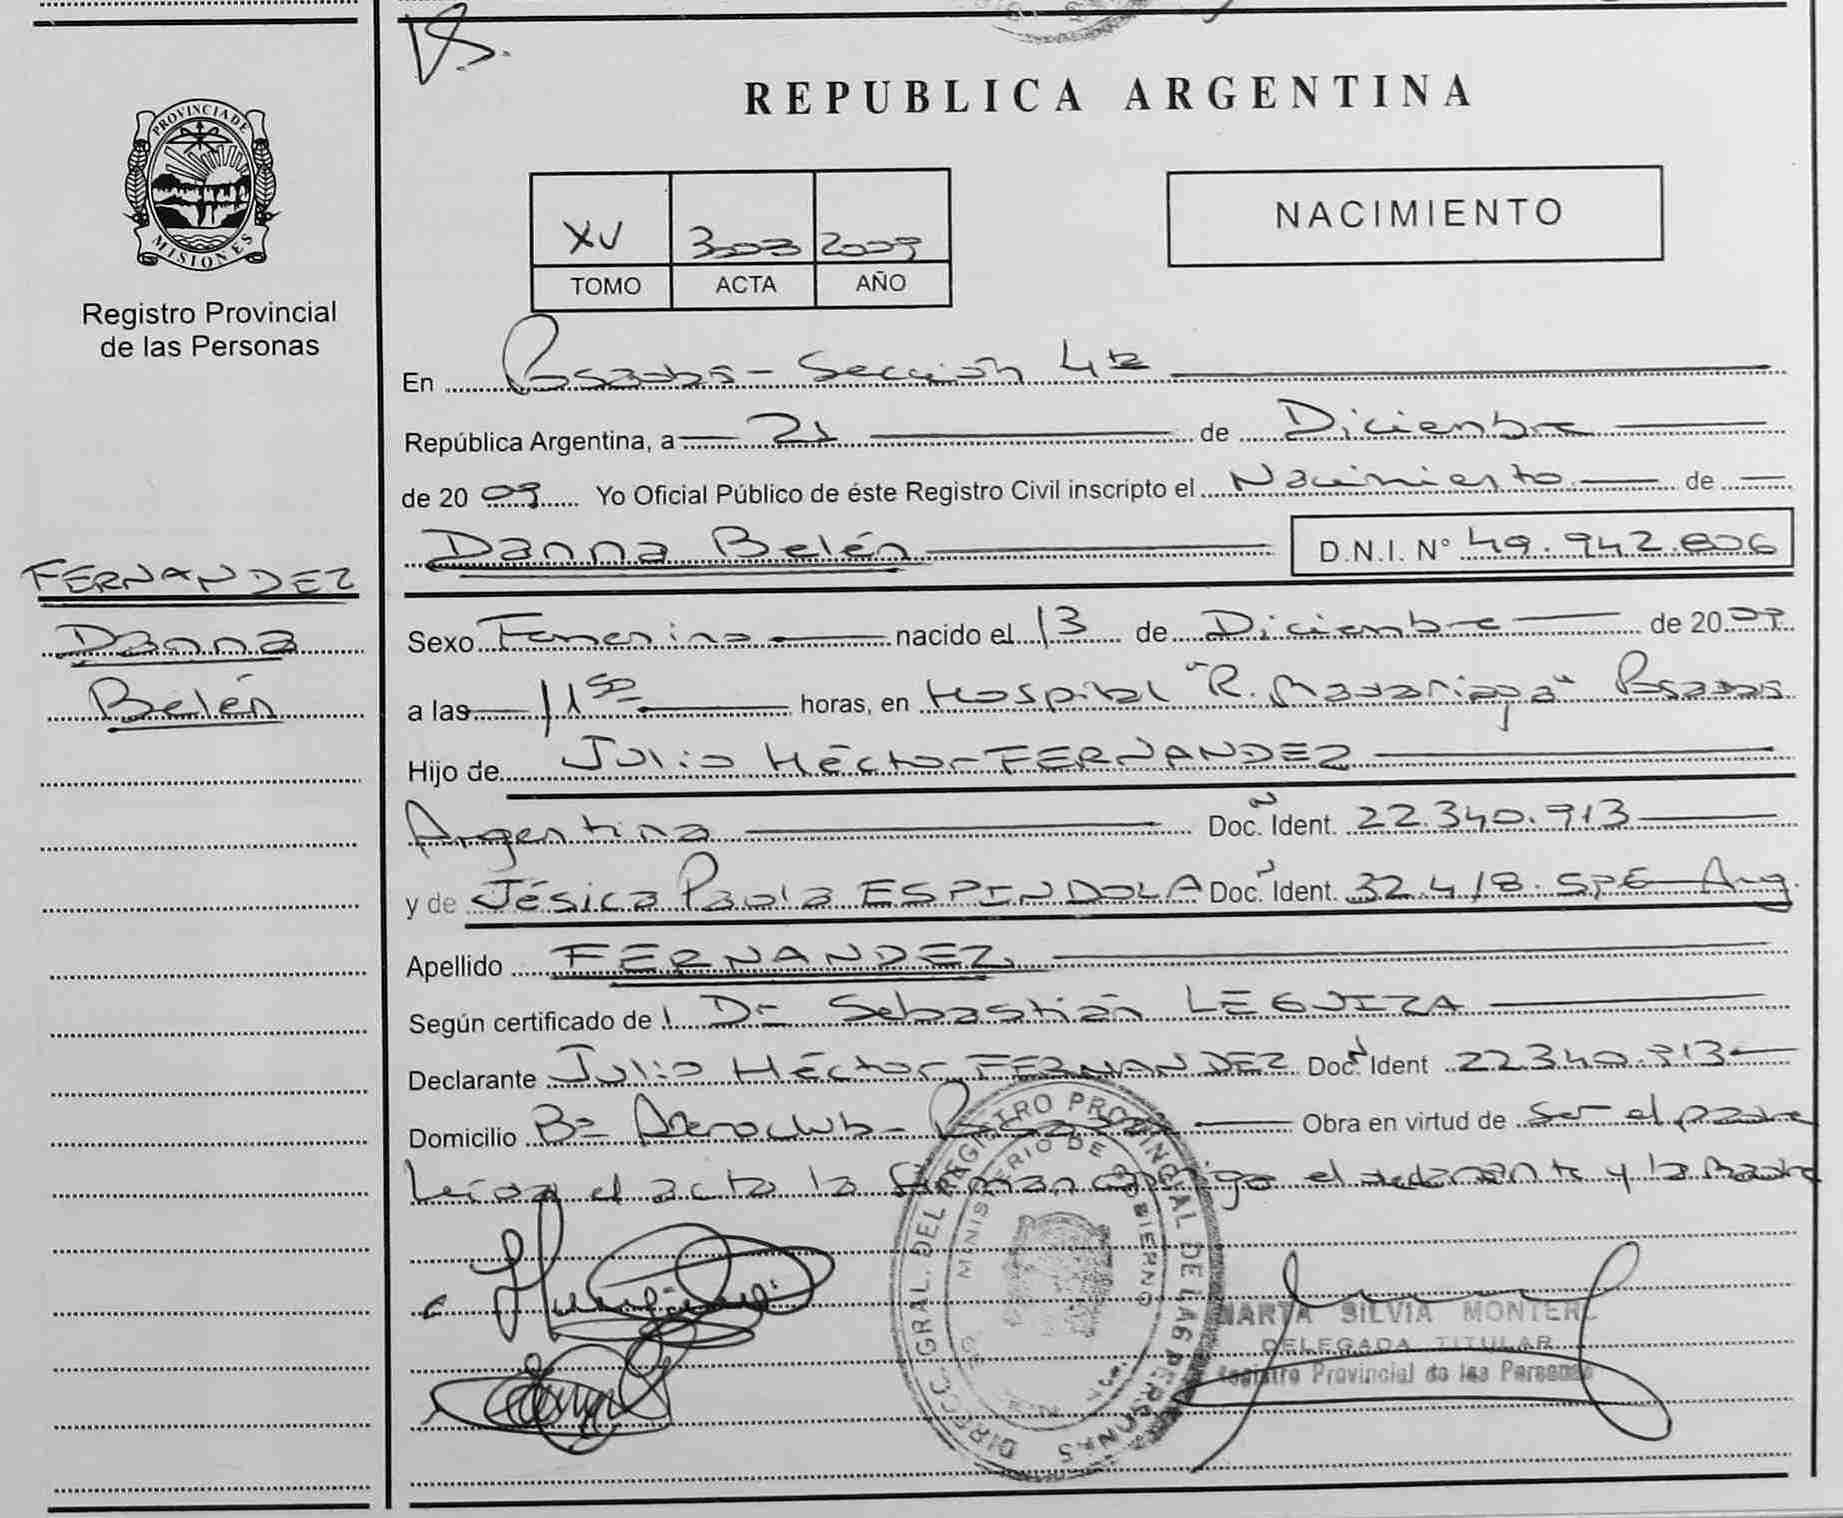 VS.
PROVINCIA DE
MISIONES
Registro Provincial
de las Personas
FERNANDEZ
Danna
Belén
REPUBLICA ARGENTINA
XV 3003 2009
TOMO ACTA AÑO
NACIMIENTO
En Posadas - Sección 4ta
República Argentina, a 21 de Diciembre
de 2009 Yo Oficial Público de éste Registro Civil inscripto el Nacimiento de
Danna Belén D.N.I. N° 49.942.806
Sexo Femenino nacido el 13 de Diciembre de 2009
a las 11 50 horas, en Hospital "R. Madariaga" Posadas
Hijo de Julio Héctor FERNANDEZ
Argentina Doc. Ident. 22.340.913
y de Jésica Paola ESPINDOLA Doc. Ident. 32.418. Arg.
Apellido FERNANDEZ
Según certificado de l Dr Sebastián LEGUIZA
Declarante Julio Héctor FERNANDEZ Doc. Ident 22.340.913
Domicilio Bº Aeroclub - Posadas Obra en virtud de ser el padre
Leída el acta la firman conmigo el declarante y la madre
DIRECC. GRAL. DEL REGISTRO PROVINCIAL DE LAS PERSONAS
MINISTERIO DE GOBIERNO
MARTA SILVIA MONTERO
DELEGADA TITULAR
Registro Provincial de las Personas